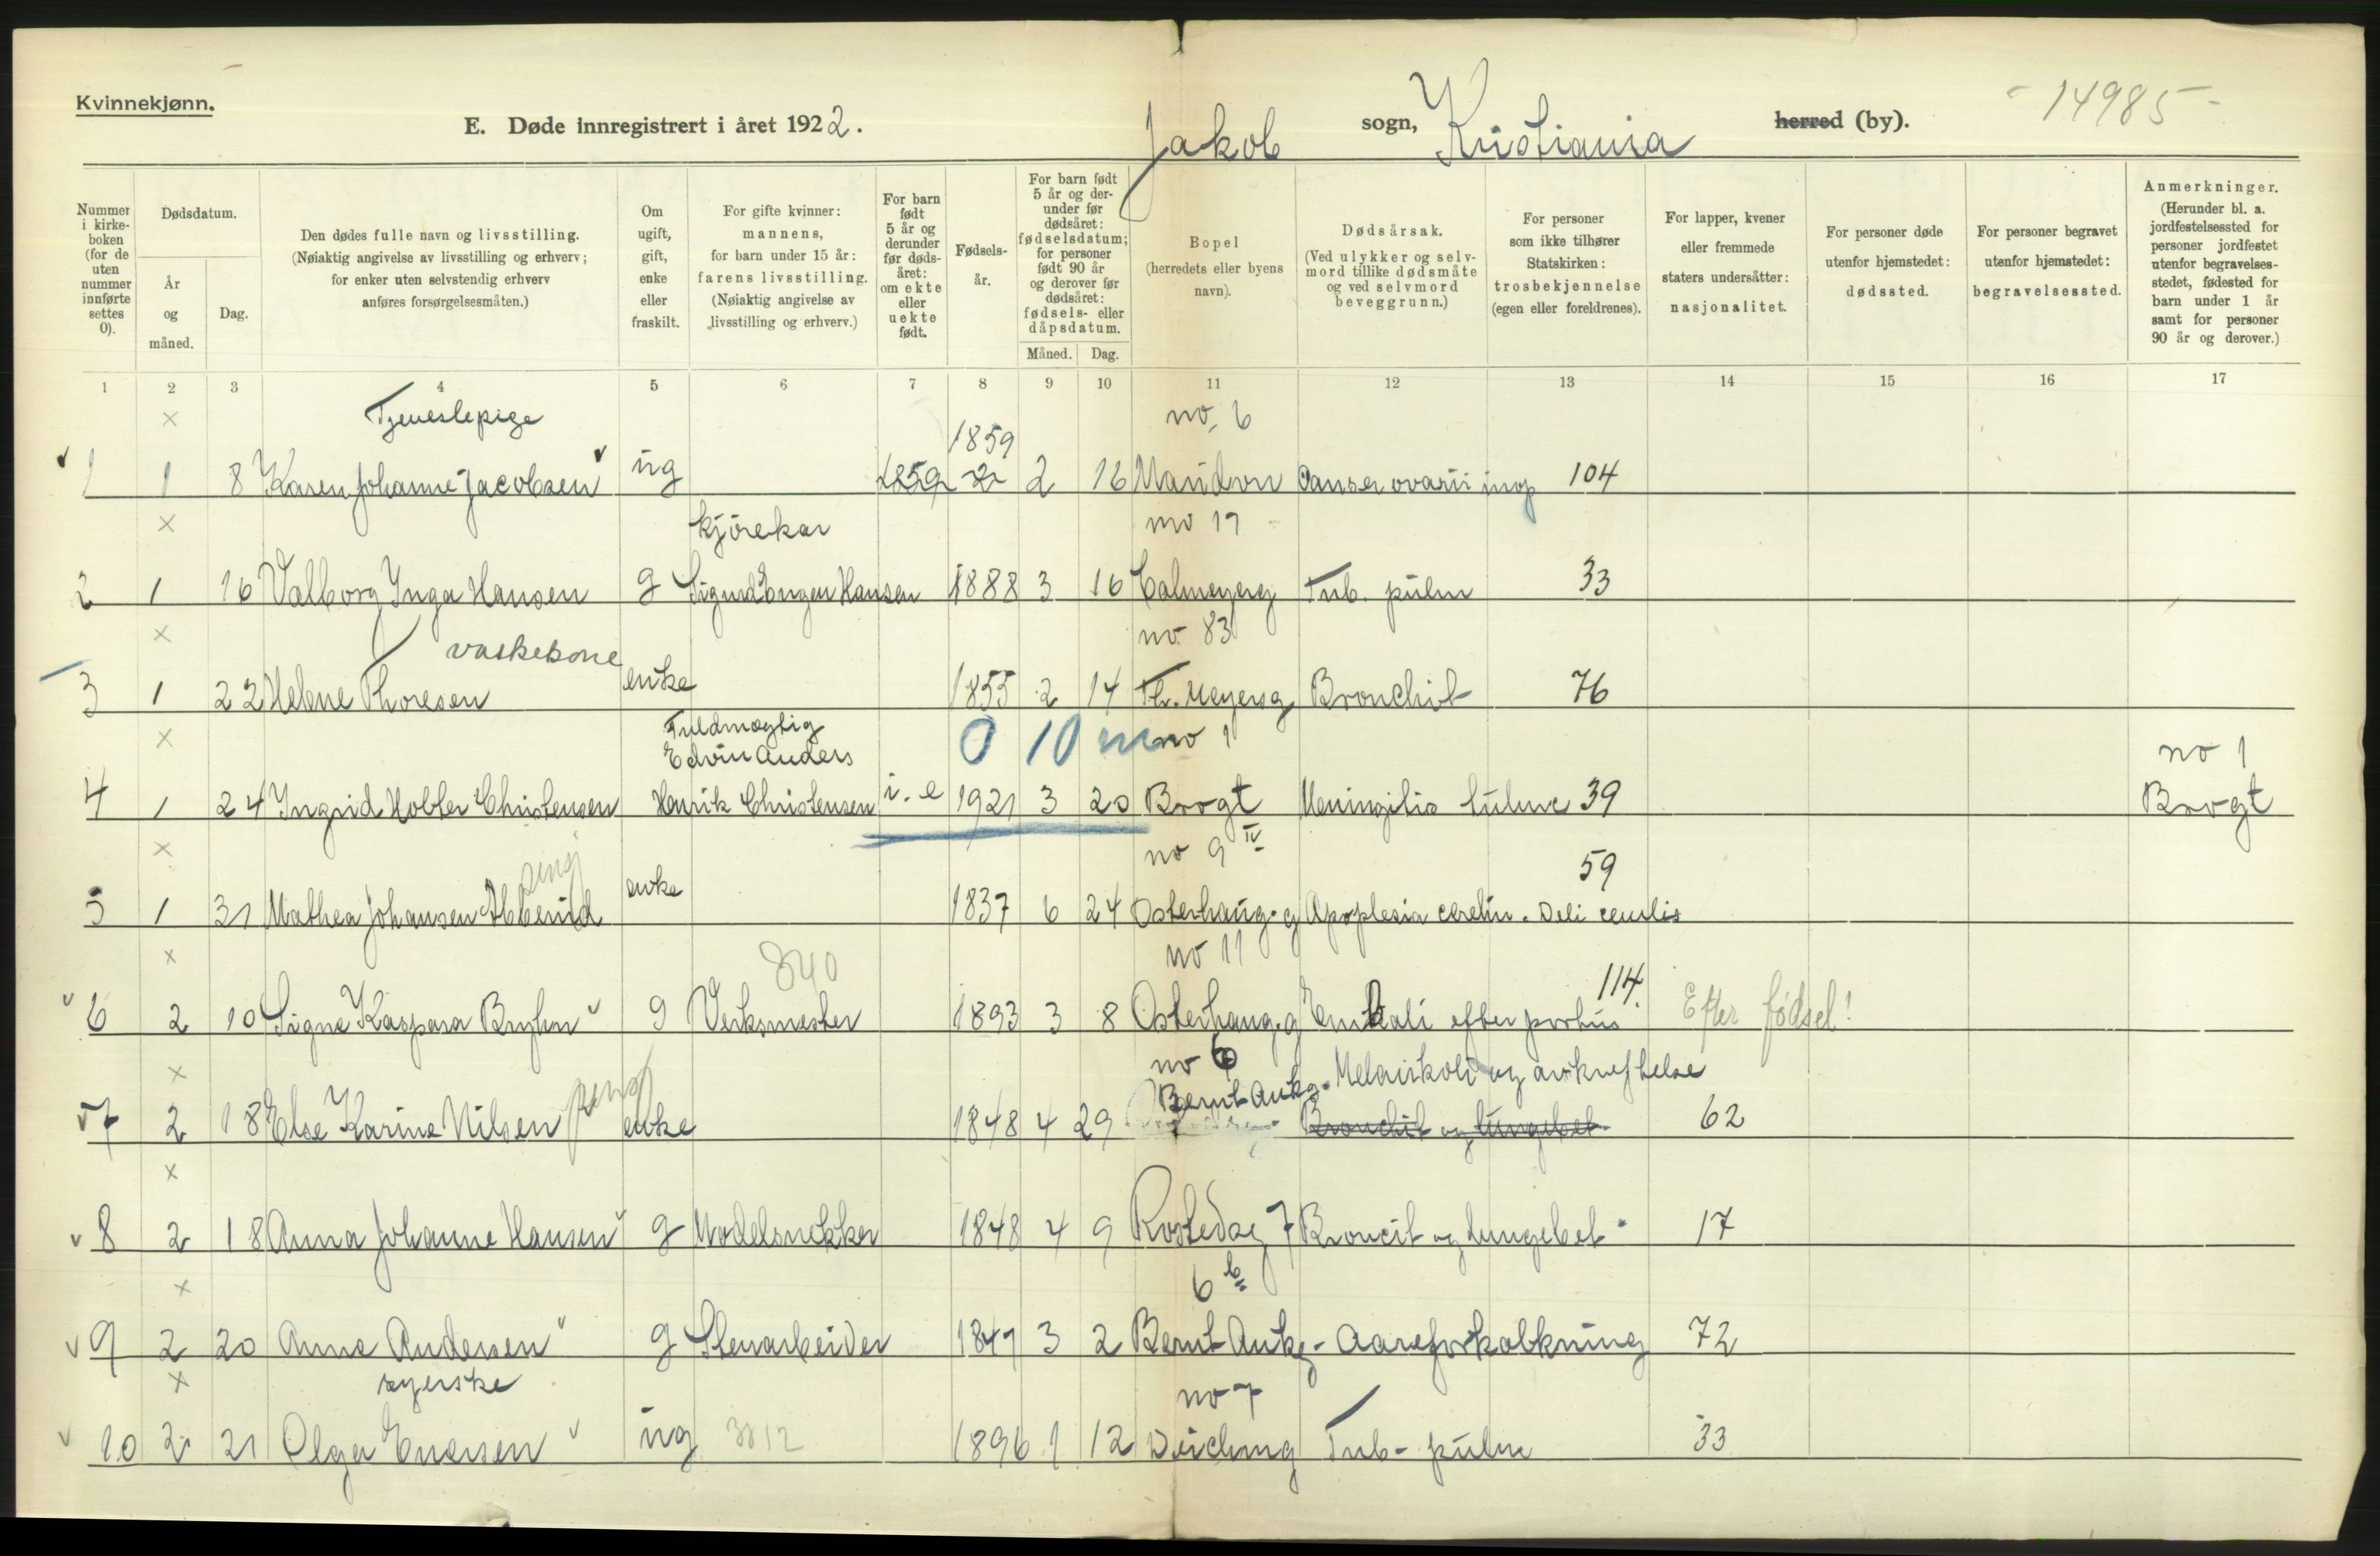 Kvinnekjønn.
E. Døde innregistrert i året 1922. Jakob sogn, Kristiania herred (by). - 14985 -
Nummer i kirkeboken (for de uten nummer innførte settes 0).
Dødsdatum.
År og måned.
Dag.
Den dødes fulle navn og livsstilling. (Nøiaktig angivelse av livsstilling og erhverv; for enker uten selvstendig erhverv anføres forsørgelsesmåten.)
Om ugift, gift, enke eller fraskilt.
For gifte kvinner: mannens, for barn under 15 år: farens livsstilling. (Nøiaktig angivelse av livsstilling og erhverv.)
For barn født 5 år og derunder før dødsåret: om ekte eller uekte født.
Fødselsår.
For barn født 5 år og derunder før dødsåret: fødselsdatum; for personer født 90 år og derover før dødsåret: fødsels- eller dåpsdatum.
Måned. Dag.
Bopel (herredets eller byens navn).
Dødsårsak. (Ved ulykker og selvmord tillike dødsmåte og ved selvmord beveggrunn.)
For personer som ikke tilhører Statskirken: trosbekjennelse (egen eller foreldrenes).
For lapper, kvener eller fremmede staters undersåtter: nasjonalitet.
For personer døde utenfor hjemstedet: dødssted.
For personer begravet utenfor hjemstedet: begravelsessted.
Anmerkninger. (Herunder bl. a. jordfestelsessted for personer jordfestet utenfor begravelsesstedet, fødested for barn under 1 år samt for personer 90 år og derover.)
1 2 3 4 5 6 7 8 9 10 11 12 13 14 15 16 17
× Tjenestepige 1859 no. 6
1 1 8 Karen Johanne Jacobsen ug 1859 2 16 Cancer ovarii inop 104
× kjörekar no 17
2 1 16 Valborg Inga Hansen g Sigurd Hansen 1888 3 16 Calmeyerg Tub. pulm 33
× vaskekone no 83
3 1 22 Helene Thoresen enke 1855 2 14 Th. Meyersg Bronchit 76
× Fuldmægtig Edvin Anders 0 10 m no 1 no 1
4 1 24 Ingrid Holter Christensen Henrik Christensen i. e 1921 3 20 Brogt Meningitis tuberc 39 Brogt
× no 9 IV 59
5 1 31 Mathea Johansen enke 1837 6 24 Osterhaug.g Apoplesia cerebri.
× 840 no 11 114.
6 2 10 Signe Kaspara Bryhn g Verksmester 1893 3 8 Osterhaug.g Emboli efter partus Efter fødsel!
× no 6 Bernt Ankg. Melankoli og avkræftelse
7 2 18 Else Karine Nilsen pens enke 1848 4 29 Bronchit og lungebet. 62
×
8 2 18 Anna Johanne Hansen g Modelsnekker 1848 4 9 Rostedsg 7 Broncit og lungebet. 17
× 6 b
9 2 20 Anne Andersen g Stenarbeider 1847 3 2 Bernt Ankg- Aareforkalkning 72
× syerske no 7
10 2 21 Olga Enersen ug 1896 1 12 Deichmg Tub- pulm 33